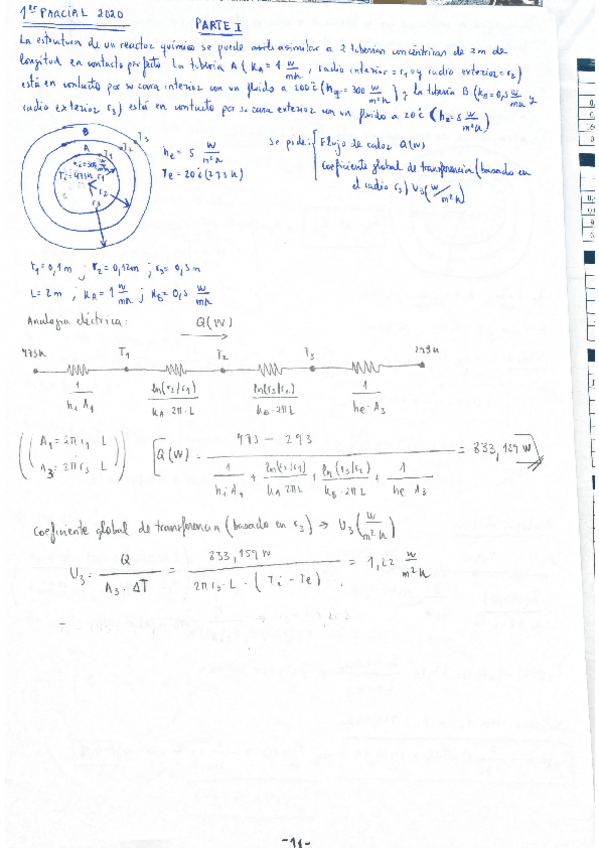 1er PARCIAL 2020
PARTE I
La estructura de un reactor químico se puede asimilar a 2 tuberías concéntricas de 2m de
longitud en contacto perfecto. La tubería A (kA = 1 W/mK, radio interior = r1 y radio exterior = r2)
está en contacto por su cara interior con un fluido a 200°C (hi = 300 W/m²K); la tubería B (kB = 0,5 W/mK y
radio exterior r3) está en contacto por su cara exterior con un fluido a 20°C (he = 5 W/m²K)
B
A
T1
T2
T3
Ti = 473K
r1
r2
r3
he = 5 W/m²K
Te = 20°C (293K)
Se pide: Flujo de calor Q(W)
coeficiente global de transferencia (basado en
el radio r3) U3 (W/m²K)
r1 = 0,1m ; r2 = 0,12m ; r3 = 0,3m
L = 2m ; kA = 1 W/mK ; kB = 0,5 W/mK
Analogía eléctrica:
Q(W)
473K T1 T2 T3 293K
1/(hi A1) ln(r2/r1)/(kA·2π·L) ln(r3/r2)/(kB·2πL) 1/(he·A3)
A1 = 2π r1 L
A3 = 2π r3 L
Q(W) = (473 - 293)/(1/(hi A1) + ln(r2/r1)/(kA 2πL) + ln(r3/r2)/(kB·2πL) + 1/(he A3)) = 833,159 W
Coeficiente global de transferencia (basado en r3) → U3 (W/m²K)
U3 = Q/(A3·ΔT) = 833,159 W/(2π r3·L·(Ti - Te)) = 1,22 W/m²K
-11-